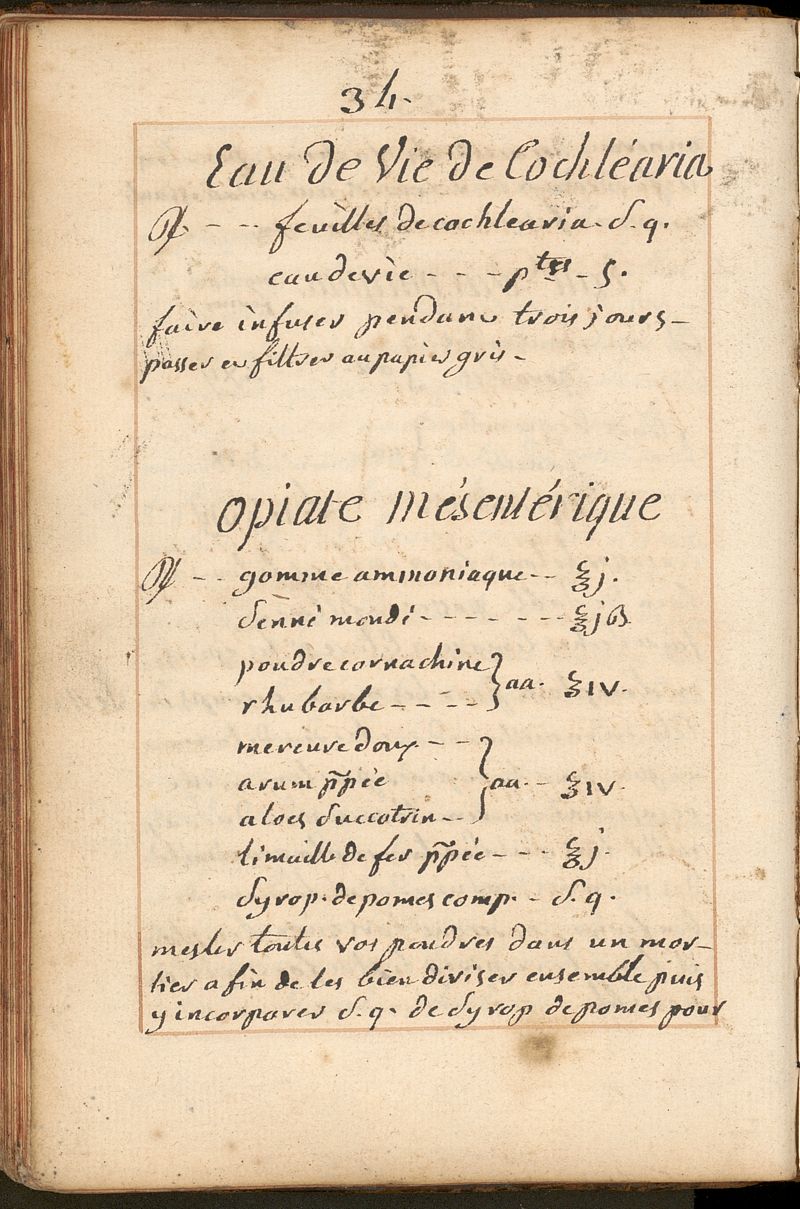 34.
Eau de Vie de Cochléaria
℞ - - - feuilles de cochlearia. S. q.
eau de vie - - - ptes - 5.
faire infuser pendant trois jours -
passer et filtrer au papier gris -
opiate mésentérique
℞ - - gomme ammoniaque - - ℥j.
Senné mondé - - - - - - - ℥jß
poudre cornachine
rhubarbe - - - - } aa. ℥IV.
mercure doux - -
arum pp̃ée } aa. - ℥IV.
aloes Succotrin - -
limaille de fer pp̃ée - - - ℥j.
Syrop. de pomes comp. - S. q.
mesler toutes vos poudres dans un mor-
tier afin de les bien diviser ensemble puis
y incorporer S. q. de Syrop de pomes pour